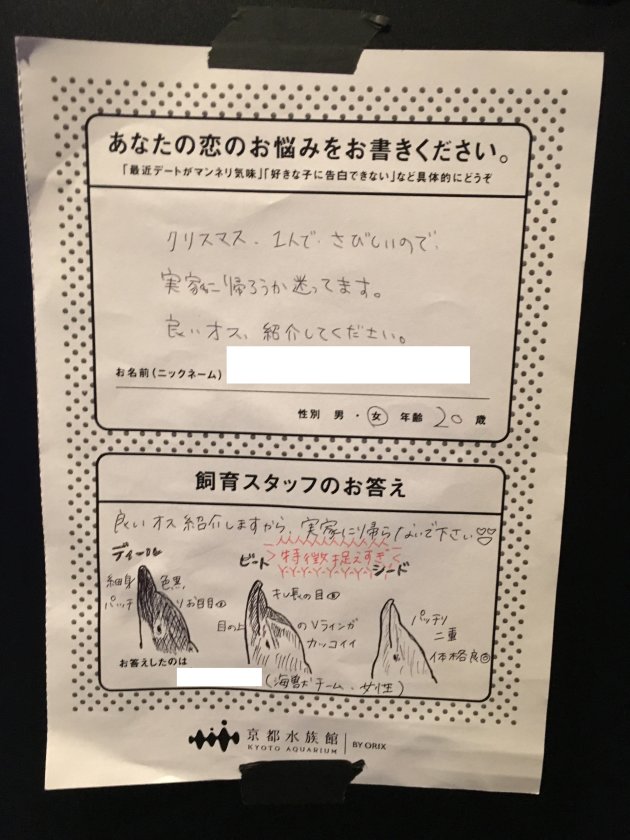 あなたの恋のお悩みをお書きください。
「最近デートがマンネリ気味」「好きな子に告白できない」など具体的にどうぞ
クリスマス、1人で、さびしいので、
実家に帰ろうか迷ってます。
良いオス、紹介してください。
お名前(ニックネーム)
性別 男・女 年齢 20 歳
飼育スタッフのお答え
良いオス紹介しますから、実家に帰らないで下さい
特徴捉えすぎ
ディール
細身 色黒
パッチリお目目
ビート
キレ長の目
目の上のVラインが
カッコイイ
シード
パッチリ
二重
体格良
お答えしたのは
(海獣チーム・女性)
京都水族館
KYOTO AQUARIUM
BY ORIX